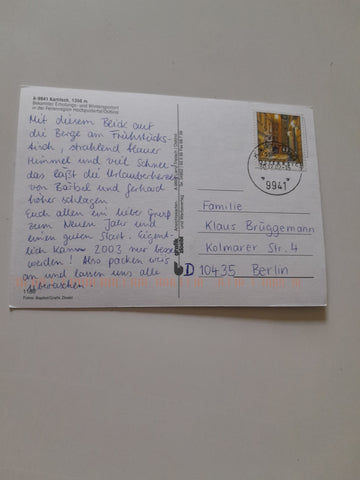 A-9941 Kartitsch, 1356 m
Bekannter Erholungs- und Wintersportort
in der Ferienregion Hochpustertal/Osttirol
Mit diesem Blick auf
die Berge am Frühstücks-
tisch, strahlend blauer
Himmel und viel Schnee
das läßt die Urlauberherzen
von Bärbel und Gerhard
höher schlagen
Euch allen ein lieber Gruß
zum Neuen Jahr und
einen guten Start. Eigent-
lich kann 2003 nur besser
werden! Also packen wir's
an und lassen uns alle
überraschen
9941
Familie
Klaus Brüggemann
Kolmarer Str. 4
D 10435 Berlin